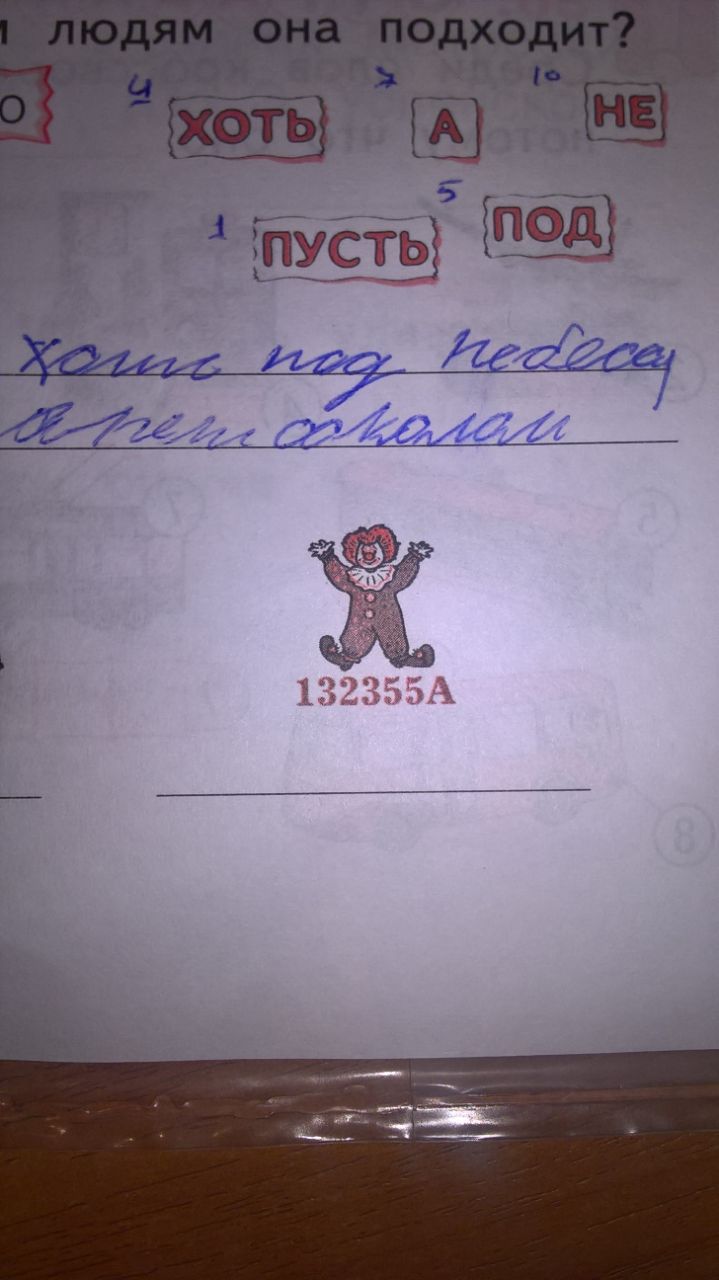 м людям она подходит?
О 4 ХОТЬ 7 А 10 НЕ
1 ПУСТЬ 5 ПОД
хоть под небеса,
соколом
5
7
132355А
8